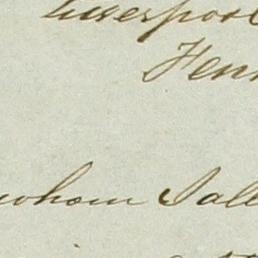 Liverpool
Hen
whom Sall